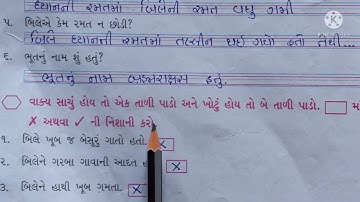 ધ્યાનની રમતમાં બિલિની રમત વધુ ગમી
૫. બિલિએ કેમ રમત ન છોડી?
બિલિ ધ્યાનની રમતમાં તલ્લીન થઈ ગયો હતો તેથી...
૬. ભૂતનું નામ શું હતું?
ભૂતનું નામ બ્રહ્મરાક્ષસ હતું.
વાક્ય સાચું હોય તો એક તાળી પાડો અને ખોટું હોય તો બે તાળી પાડો. મ
✗ અથવા ✓ ની નિશાની કરો
૧. બિલે ખૂબ જ બેસુરું ગાતો હતો. X
૨. બિલેને ગરબા ગાવાની આદત હ X
૩. બિલેને હાથી ખૂબ ગમતા. X